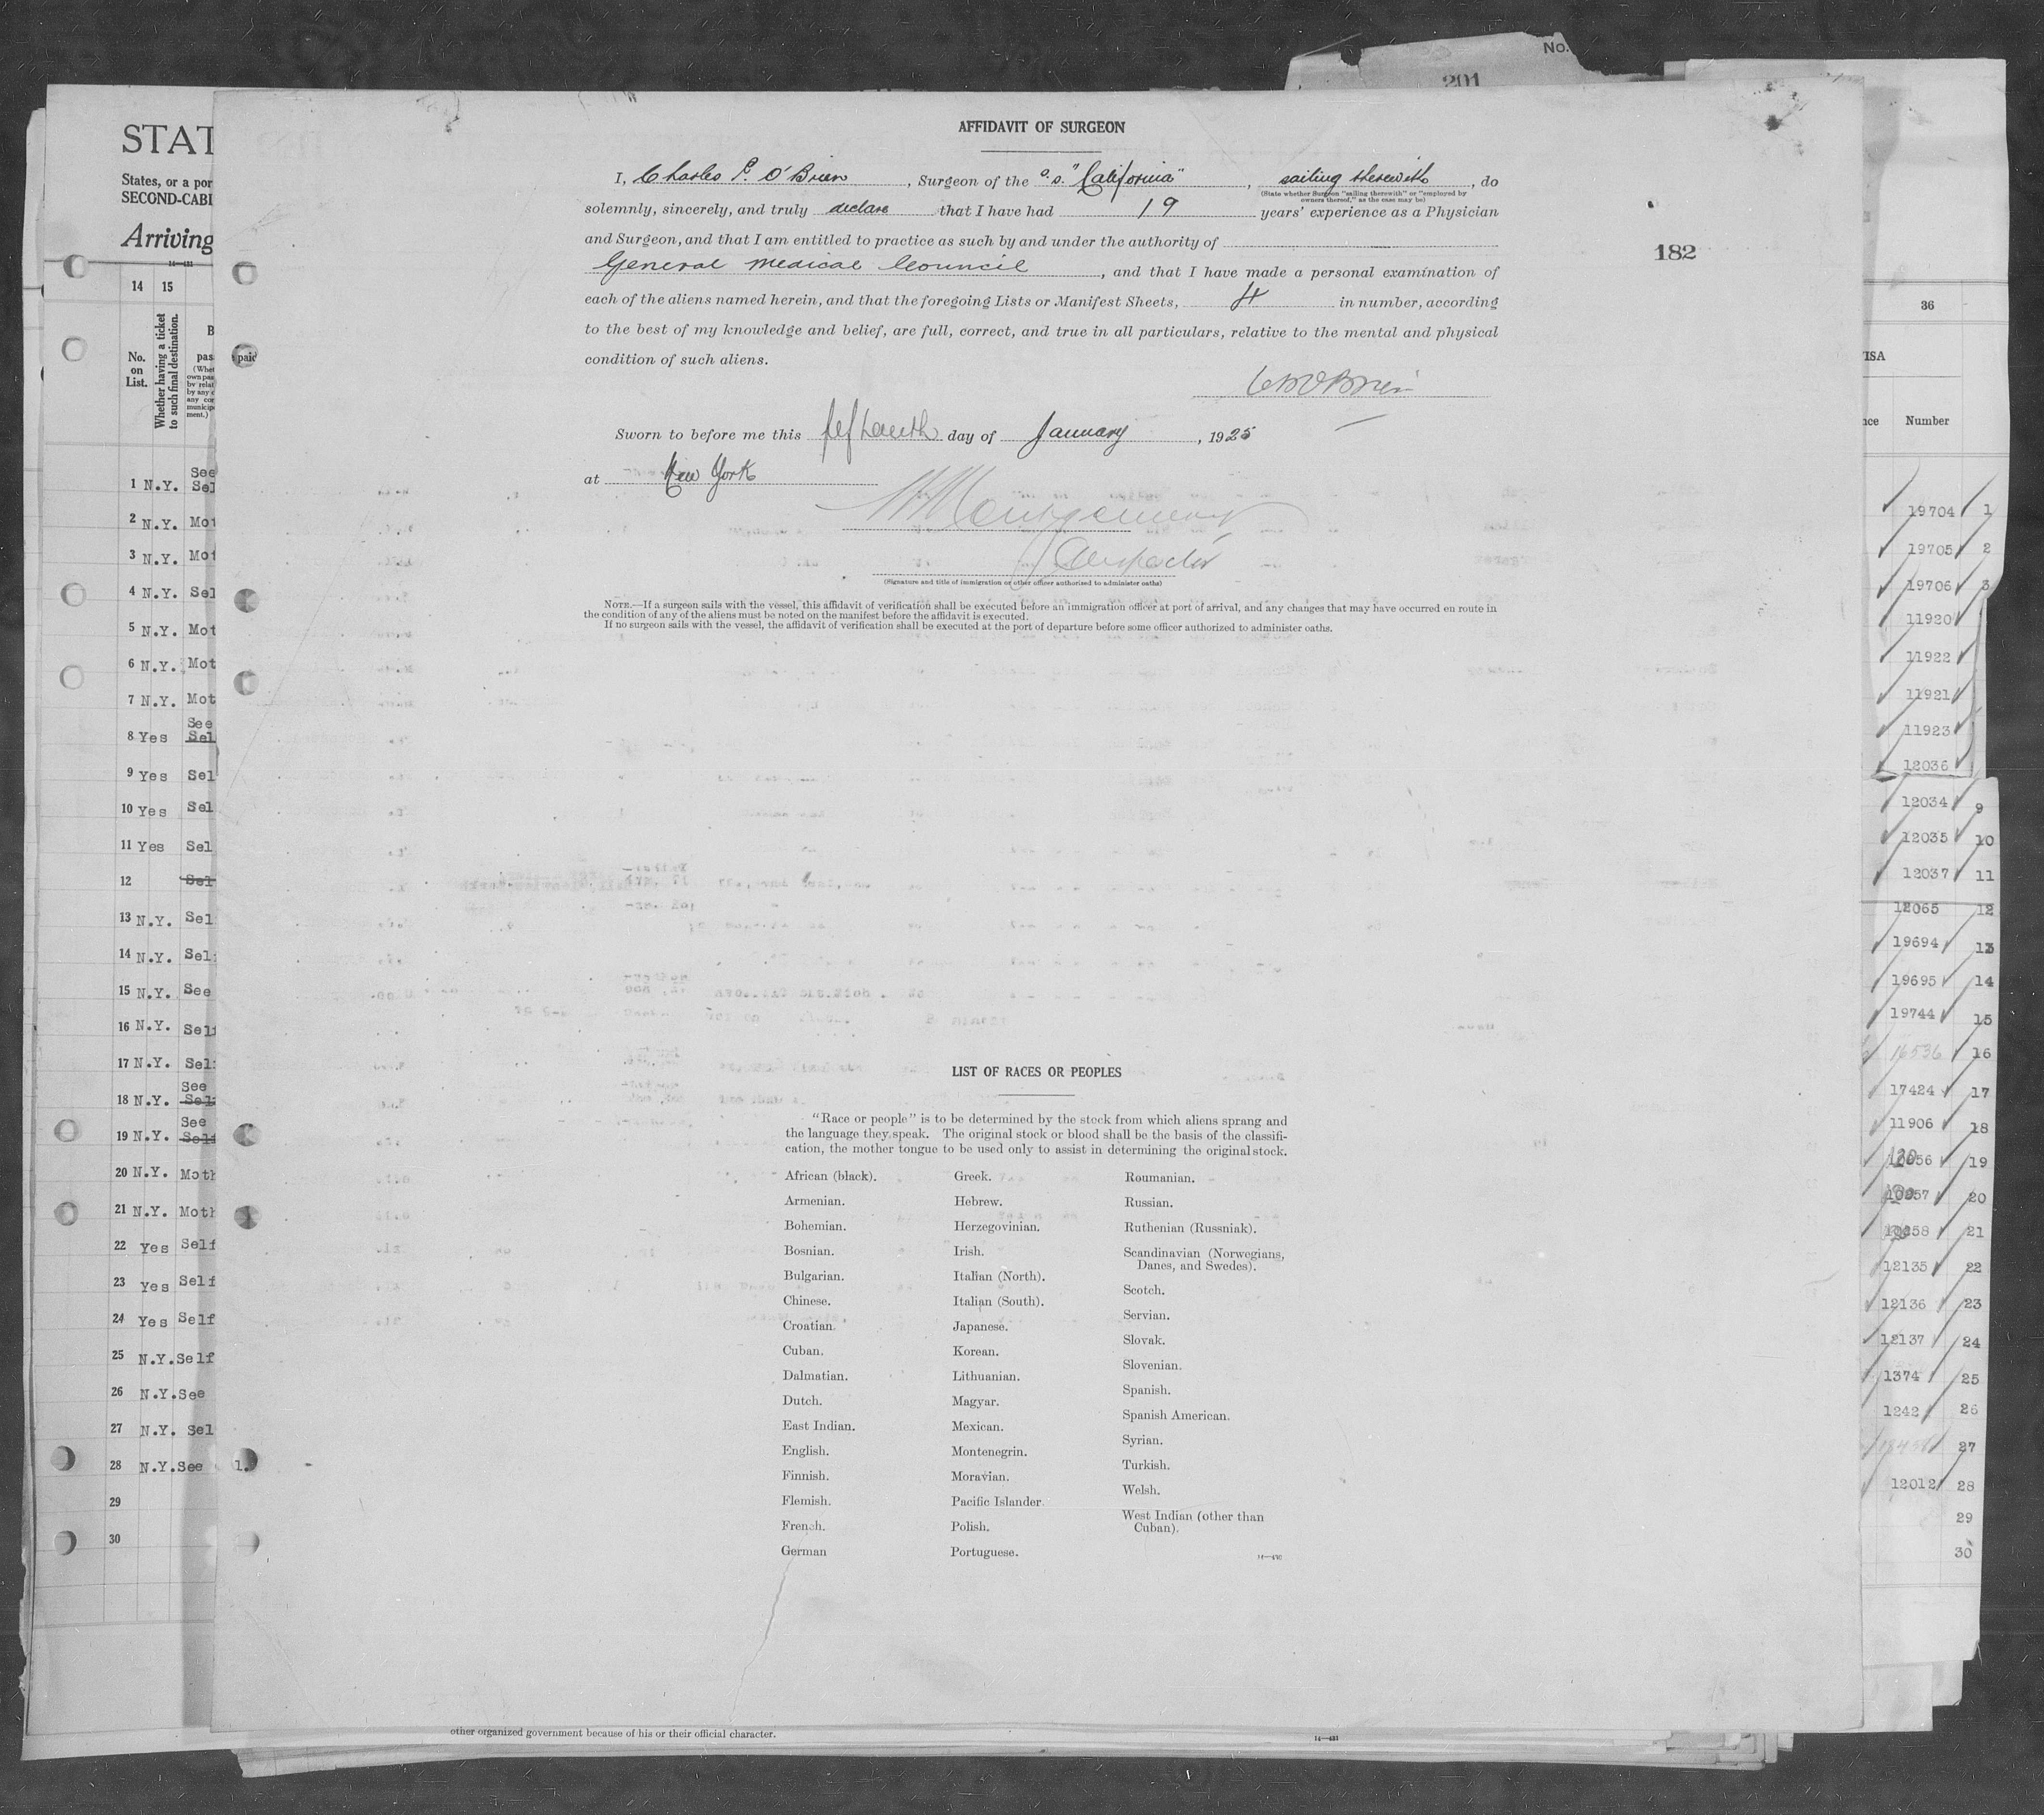 No.
201
AFFIDAVIT OF SURGEON
I, Charles P. O'Brien, Surgeon of the s.s. "California", sailing therewith, do
(State whether Surgeon "sailing therewith" or "employed by
owners thereof," as the case may be)
solemnly, sincerely, and truly declare that I have had 19 years' experience as a Physician
and Surgeon, and that I am entitled to practice as such by and under the authority of
General Medical Council, and that I have made a personal examination of
each of the aliens named herein, and that the foregoing Lists or Manifest Sheets, 4 in number, according
to the best of my knowledge and belief, are full, correct, and true in all particulars, relative to the mental and physical
condition of such aliens.
182
Sworn to before me this day of January, 1925
at New York
Montgomery
Inspector
(Signature and title of immigration or other officer authorized to administer oaths)
NOTE.—If a surgeon sails with the vessel, this affidavit of verification shall be executed before an immigration officer at port of arrival, and any changes that may have occurred en route in
the condition of any of the aliens must be noted on the manifest before the affidavit is executed.
If no surgeon sails with the vessel, the affidavit of verification shall be executed at the port of departure before some officer authorized to administer oaths.
LIST OF RACES OR PEOPLES
"Race or people" is to be determined by the stock from which aliens sprang and
the language they speak. The original stock or blood shall be the basis of the classifi-
cation, the mother tongue to be used only to assist in determining the original stock.
African (black).
Armenian.
Bohemian.
Bosnian.
Bulgarian.
Chinese.
Croatian.
Cuban.
Dalmatian.
Dutch.
East Indian.
English.
Finnish.
Flemish.
French.
German
Greek.
Hebrew.
Herzegovinian.
Irish.
Italian (North).
Italian (South).
Japanese.
Korean.
Lithuanian.
Magyar.
Mexican.
Montenegrin.
Moravian.
Pacific Islander.
Polish.
Portuguese.
Roumanian.
Russian.
Ruthenian (Russniak).
Scandinavian (Norwegians,
Danes, and Swedes).
Scotch.
Servian.
Slovak.
Slovenian.
Spanish.
Spanish American.
Syrian.
Turkish.
Welsh.
West Indian (other than
Cuban).
other organized government because of his or their official character.
14—431
STAT
States, or a por
SECOND-CABI
Arriving
14—431
14 15
No.
on
List.
Whether having a ticket
to such final destination.
paid
See
1 N.Y. Sel
2 N.Y. Mot
3 N.Y. Mot
4 N.Y. Sel
5 N.Y. Mot
6 N.Y. Mot
7 N.Y. Mot
See
8 Yes Sel
9 Yes Sel
10 Yes Sel
11 Yes Sel
12 Sel
13 N.Y. Sel
14 N.Y. Sel
15 N.Y. See
16 N.Y. Self
17 N.Y. Sel
See
18 N.Y. Sel
See
19 N.Y. Self
20 N.Y. Moth
21 N.Y. Moth
22 Yes Self
23 Yes Self
24 Yes Self
25 N.Y. Self
26 N.Y. See
27 N.Y. Sel
28 N.Y. See 1.
29
30
36
VISA
Number
19704 1
19705 2
19706 3
11920
11922
11921
11923
12036
12034 9
12035 10
12037 11
12065 12
19694 13
19695 14
19744 15
16536 16
17424 17
11906 18
19
20
21
12135 22
12136 23
12137 24
1374 25
1242 26
27
12012 28
29
30